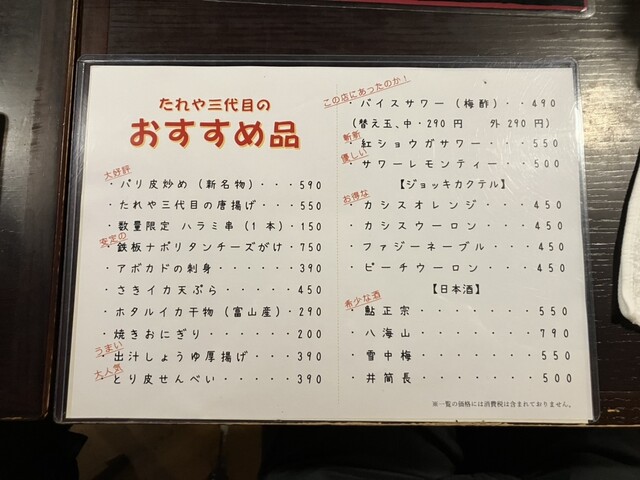 たれや三代目の
おすすめ品
大好評
・パリ皮炒め（新名物）・・・590
・たれや三代目の唐揚げ・・・550
・数量限定 ハラミ串（1本）・150
安定の
・鉄板ナポリタンチーズがけ・750
・アボカドの刺身・・・・・・390
・さきイカ天ぷら・・・・・450
・ホタルイカ干物（富山産）・290
・焼きおにぎり・・・・・・200
うまい
・出汁しょうゆ厚揚げ・・・390
大人気
・とり皮せんべい・・・・・390
この店にあったのか！
・バイスサワー（梅酢）・・490
（替え玉、中・290円　外 290円）
斬新
・紅ショウガサワー・・・550
優しい
・サワーレモンティー・・500
【ジョッキカクテル】
お得な
・カシスオレンジ・・・450
・カシスウーロン・・・450
・ファジーネーブル・・・450
・ピーチウーロン・・・450
【日本酒】
希少な酒
・鮎正宗・・・・・・・550
・八海山・・・・・・・790
・雪中梅・・・・・・・550
・井筒長・・・・・・・500
※一覧の価格には消費税は含まれておりません。